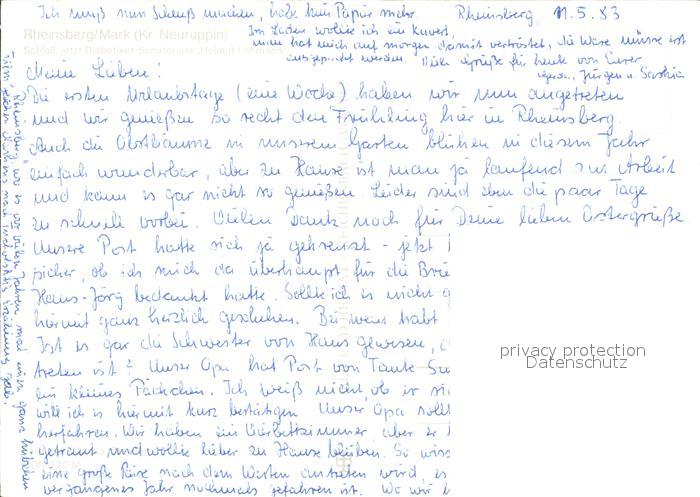 Ich muß nun Schluß machen, habe kein Papier mehr
Rheinsberg, 11.5.83
Im Laden wollte ich ein Kuvert,
man hat mich auf morgen damit vertröstet, die Ware müsse erst
ausgepackt werden. Viele Grüße für heute von Eurer
Jürgen u. Saskia
Rheinsberg/Mark (Kr. Neuruppin)
Schloß, jetzt Diabetiker-Sanatorium "Helmut Lehmann"
Meine Lieben!
Die ersten Urlaubstage (eine Woche) haben wir nun angetreten
und wir genießen so recht den Frühling hier in Rheinsberg.
Auch die Obstbäume in unserem Garten blühen in diesem Jahr
einfach wunderbar, aber zu Hause ist man ja laufend zur Arbeit
und kann es gar nicht so genießen. Leider sind eben die paar Tage
zu schnell vorbei. Vielen Dank noch für Deine lieben Ostergrüße
Unsere Post hatte sich ja gekreuzt - jetzt
sicher, ob ich mich da überhaupt für die
Hans-Jörg bedankt hatte. Sollte ich es nicht
hiermit ganz herzlich geschehen. Bei wem habt
Ist es gar die Schwester von Hans gewesen,
treten ist? Unser Opa hat Post von Tante
ein kleines Päckchen. Ich weiß nicht, ob er
will ich es hiermit kurz bestätigen. Unser Opa
herfahren. Wir haben ein Vierbettzimmer, aber er
getraut und wollte lieber zu Hause bleiben. So
eine große Reise nach dem Westen antreten wird,
vergangenes Jahr nochmals gefahren ist. Wo wir
Rheinsberg, wo es vor vielen Jahren mal einen ganz hübschen
Film
privacy protection
Datenschutz